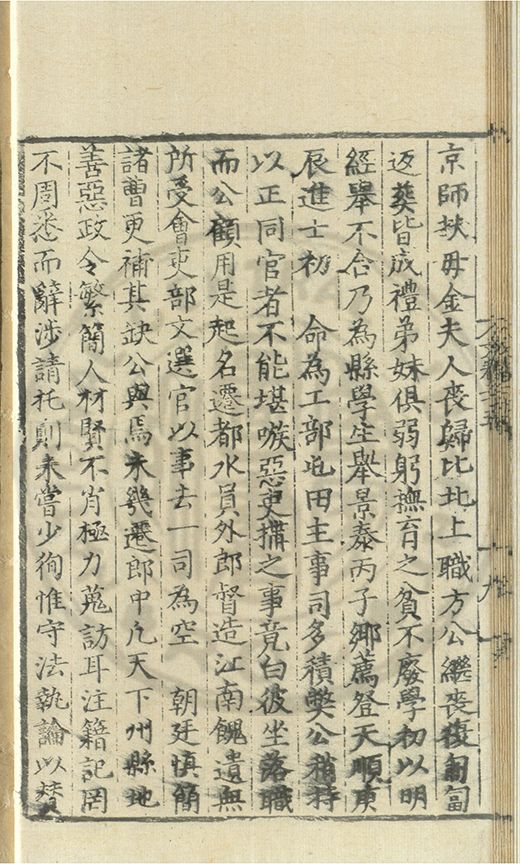 京師扶毋金夫人喪歸比北上職方公繼喪復匍匐
返葬皆成禮弟妹俱弱躬撫育之貧不廢學初以明
經舉不合乃為縣學生舉景泰丙子鄉薦登天順庚
辰進士初　命為工部屯田主事司多積弊公稍持
以正同官者不能堪嗾惡吏搆之事竟白彼坐落職
而公顧用是起名遷都水員外郎督造江南餽遺無
所受會吏部文選官以事去一司為空　朝廷慎簡
諸曹更補其缺公與焉未幾遷郎中凢天下州縣地
善惡政令繁簡人材賢不肖極力蒐訪耳注籍記罔
不周悉而辭涉請托則未嘗少徇惟守法執論以賛